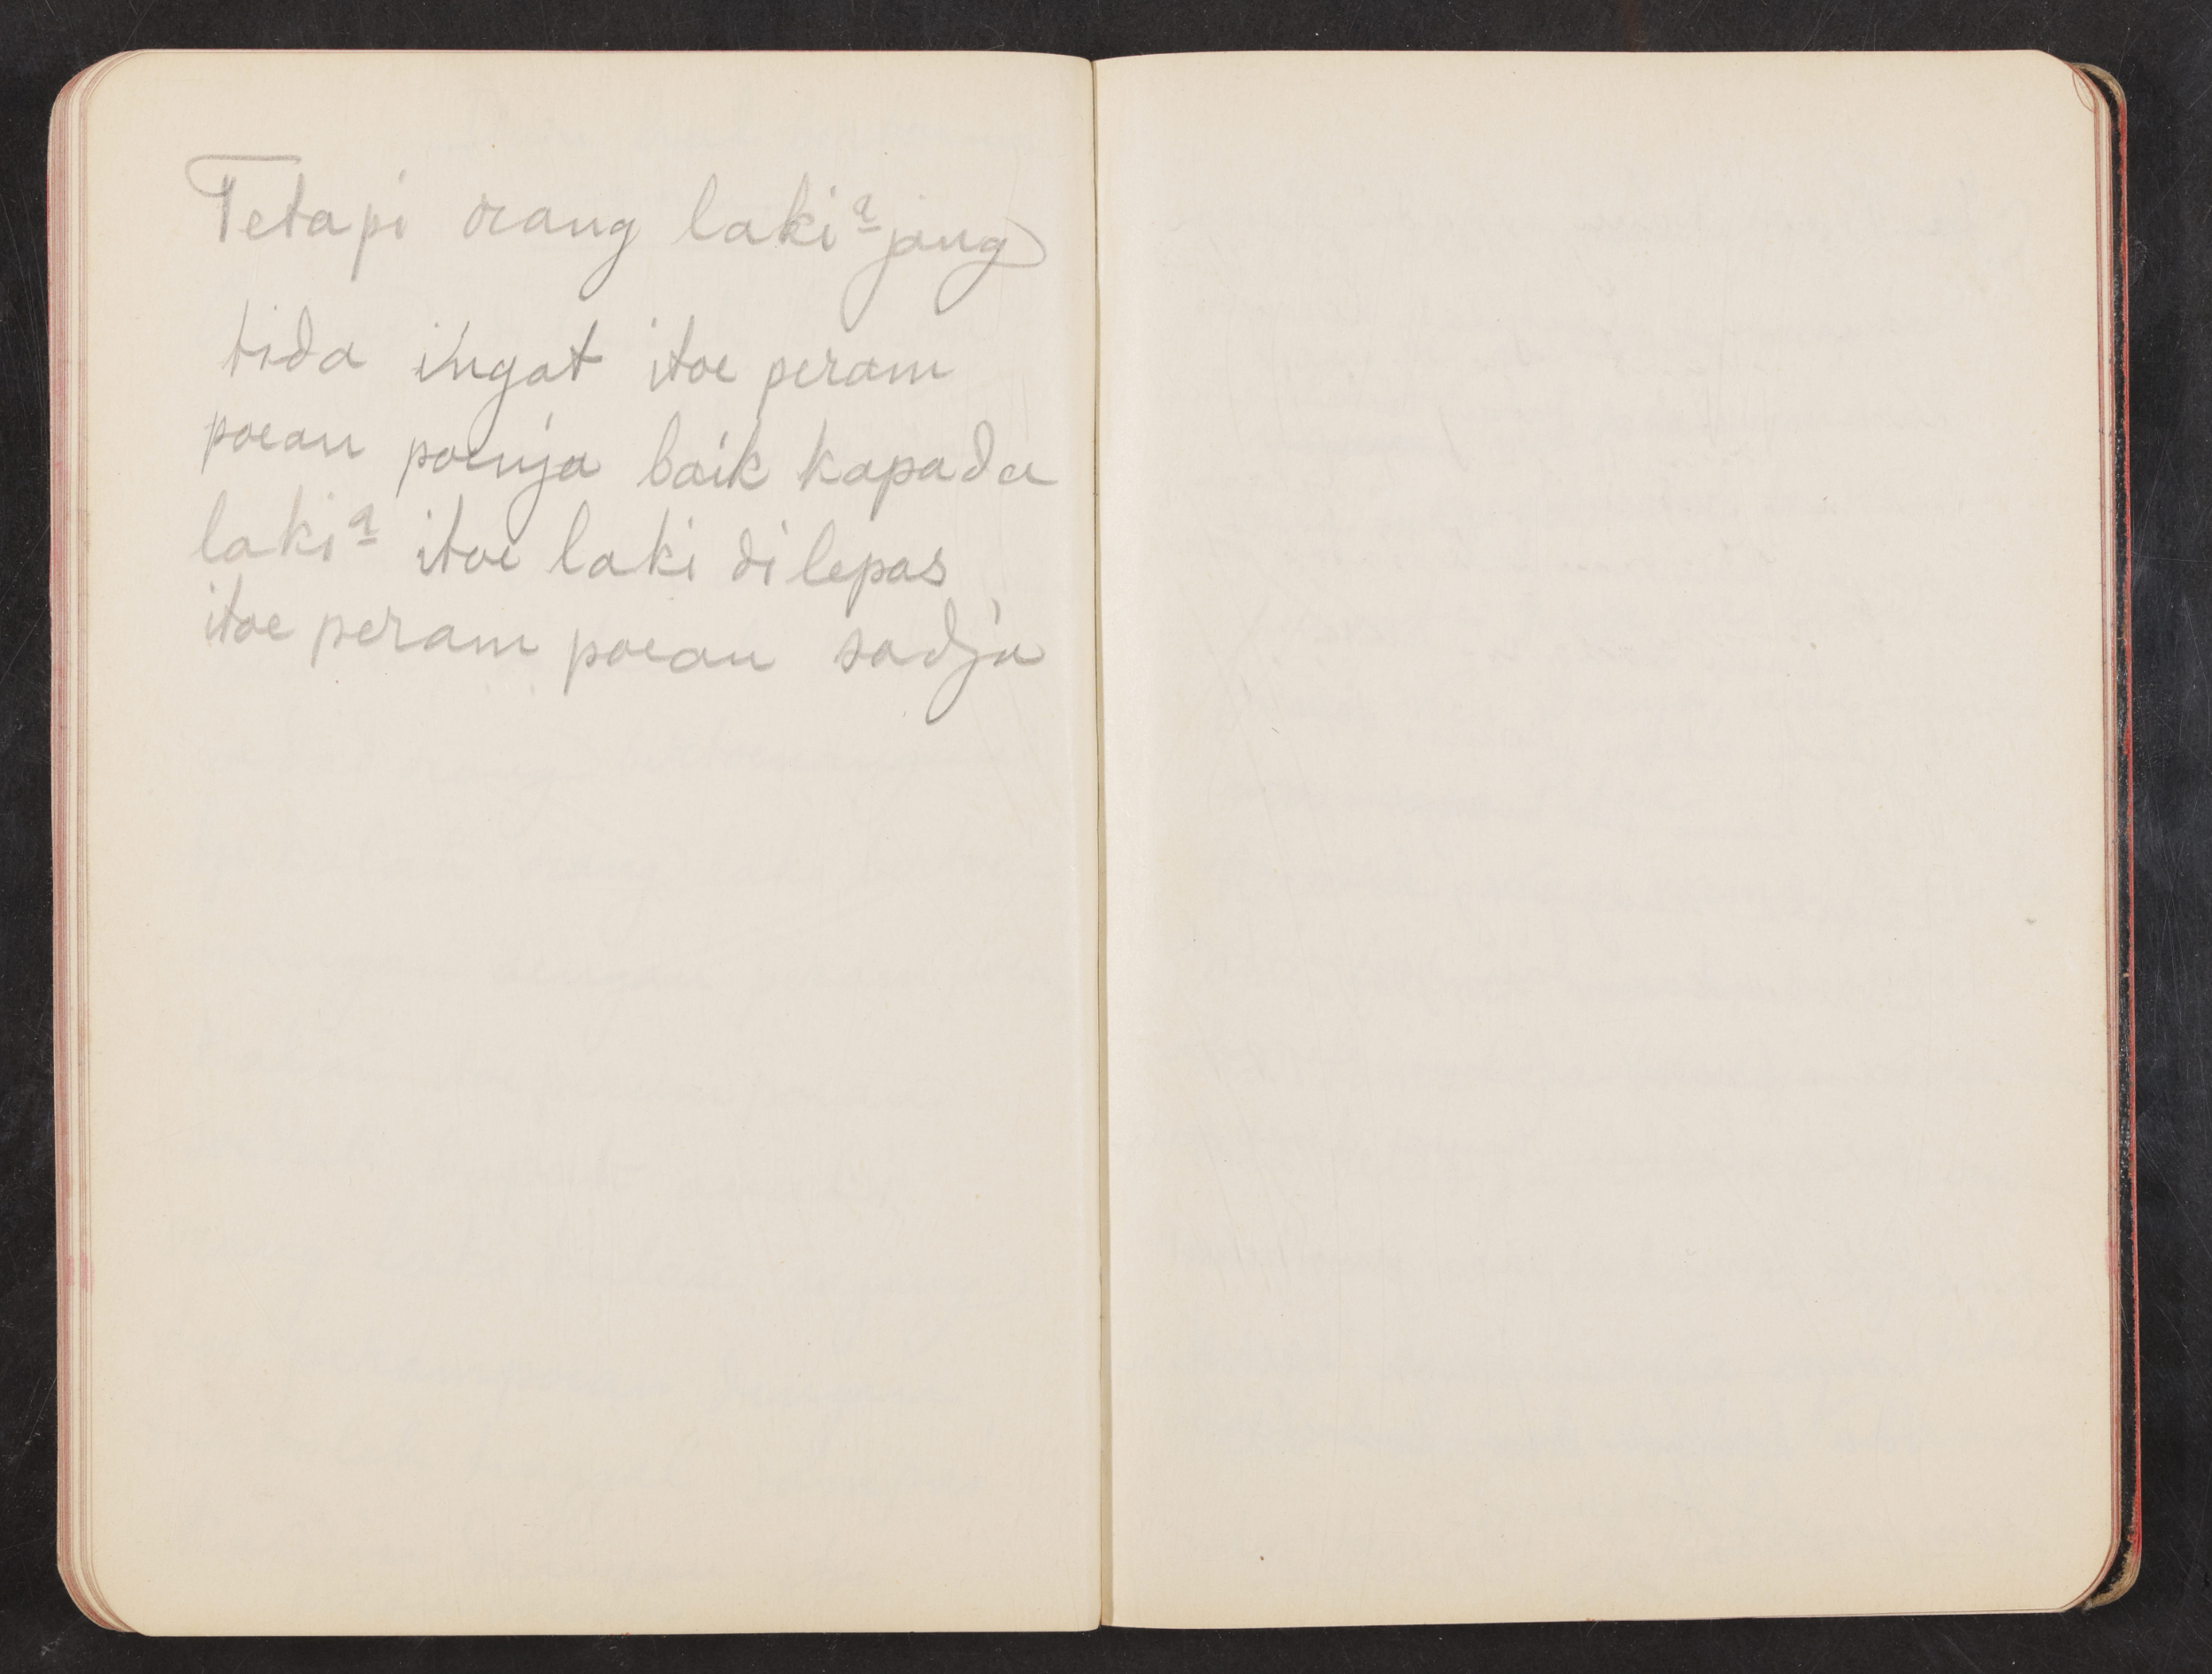 Tetapi orang laki² jang
tida ingat itoe peram
poean poenja baik kapada
laki² itoe laki di lepas
itoe peram poean sadja